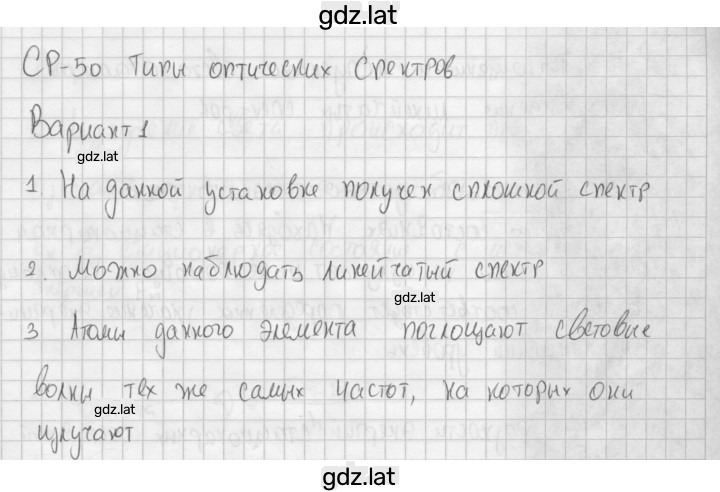 gdz.lat
СР-50 Типы оптических спектров
Вариант 1
gdz.lat
1. На данной установке получен сплошной спектр
2. Можно наблюдать линейчатый спектр
gdz.lat
3 Атомы данного элемента поглощают световые
волны тех же самых частот, на которых они
gdz.lat
излучают
gdz.lat